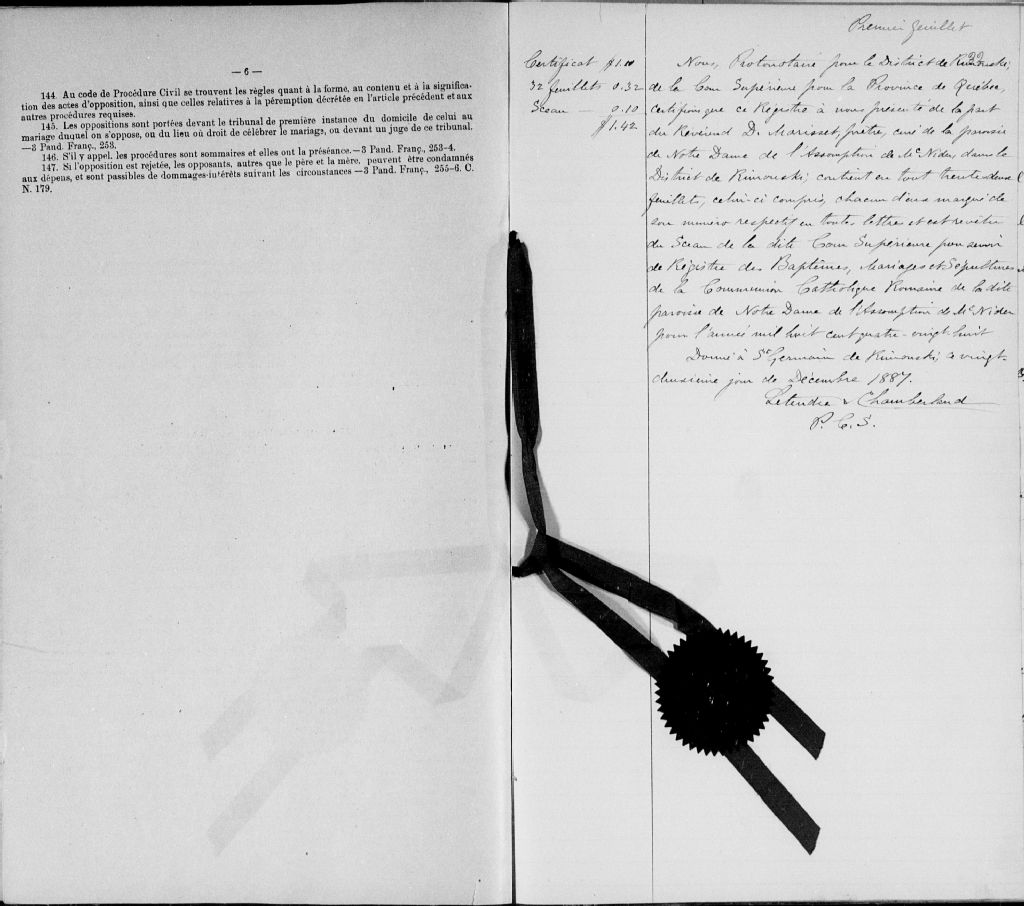 — 6 —
144. Au code de Procédure Civil se trouvent les règles quant à la forme, au contenu et à la significa-
tion des actes d'opposition, ainsi que celles relatives à la péremption décrétée en l'article précédent et aux
autres procédures requises.
145. Les oppositions sont portées devant le tribunal de première instance du domicile de celui au
mariage duquel on s'oppose, ou du lieu où droit de célébrer le mariage, ou devant un juge de ce tribunal.
—3 Pand. Franç., 253.
146. S'il y appel, les procédures sont sommaires et elles ont la préséance.—3 Pand. Franç., 253-4.
147. Si l'opposition est rejetée, les opposants, autres que le père et la mère, peuvent être condamnés
aux dépens, et sont passibles de dommages-intérêts suivant les circonstances —3 Pand. Franç., 255-6. C.
N. 179.
Premier feuillet
Certificat $1.00
32 feuillets 0.32
Sceau — 0.10
$1.42
Nous, Protonotaire pour le District de Rimouski,
de la Cour Supérieure pour la Province de Québec,
certifions que ce Régistre à nous présenté de la part
du Révérend D. Morisset, prêtre, curé de la paroisse
de Notre Dame de l'Assomption de McNider, dans le
District de Rimouski, contient en tout trente-deux
feuillets, celui-ci compris, chacun d'eux marqué de
son numéro respectif en toutes lettres et est revêtu
du Sceau de la dite Cour Supérieure pour servir
de Régistre des Baptêmes, Mariages et Sépultures
de la Communion Catholique Romaine de la dite
paroisse de Notre Dame de l'Assomption de McNider
pour l'année mil huit cent quatre-vingt huit
Donné à St Germain de Rimouski ce vingt-
deuxième jour de Décembre 1887.
Letendre & Chamberland
P. C. S.